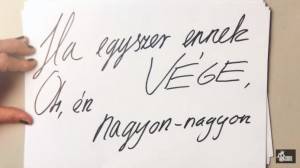 Ha egyszer ennek
VÉGE,
Oh, én
nagyon-nagyon